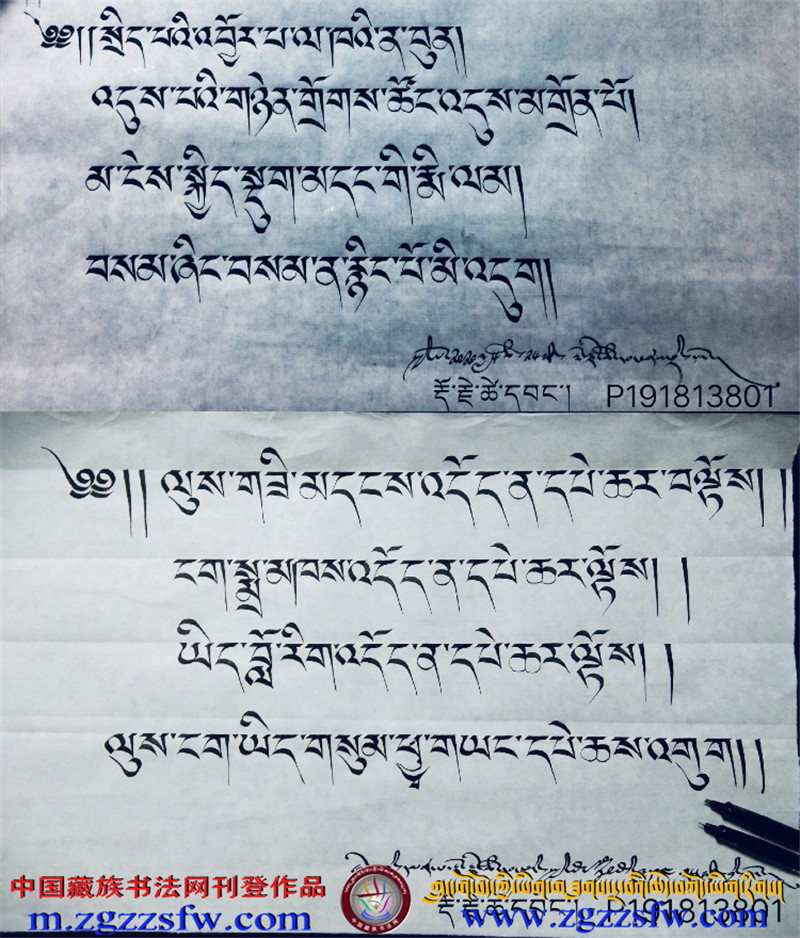 ༄༅།།སྲིད་པའི་འབྱོར་པ་ལ་ཁའི་ན་བུན།
འདུས་པའི་གཉེན་གྲོགས་ཚོང་འདུས་མགྲོན་པོ།
མ་ངེས་སྐྱིད་སྡུག་མདང་གི་རྨི་ལམ།
བསམ་ཞིང་བསམ་ན་སྙིང་པོ་མི་འདུག།
རྡོ་རྗེ་ཚེ་དབང་། P191813801
༄༅།། ལུས་གཟི་མདངས་འདོད་ན་དཔེ་ཆར་བལྟོས། །
ངག་སྨྲ་མཁས་འདོད་ན་དཔེ་ཆར་ལྟོས། །
ཡིད་བློ་རིག་འདོད་ན་དཔེ་ཆར་ལྟོས། །
ལུས་ངག་ཡིད་གསུམ་ཕྱུག་ཡང་དཔེ་ཆས་འགུག།།
རྡོ་རྗེ་ཚེ་དབང་། P191813801
中国藏族书法网刊登作品
m.zgzzsfw.com www.zgzzsfw.com